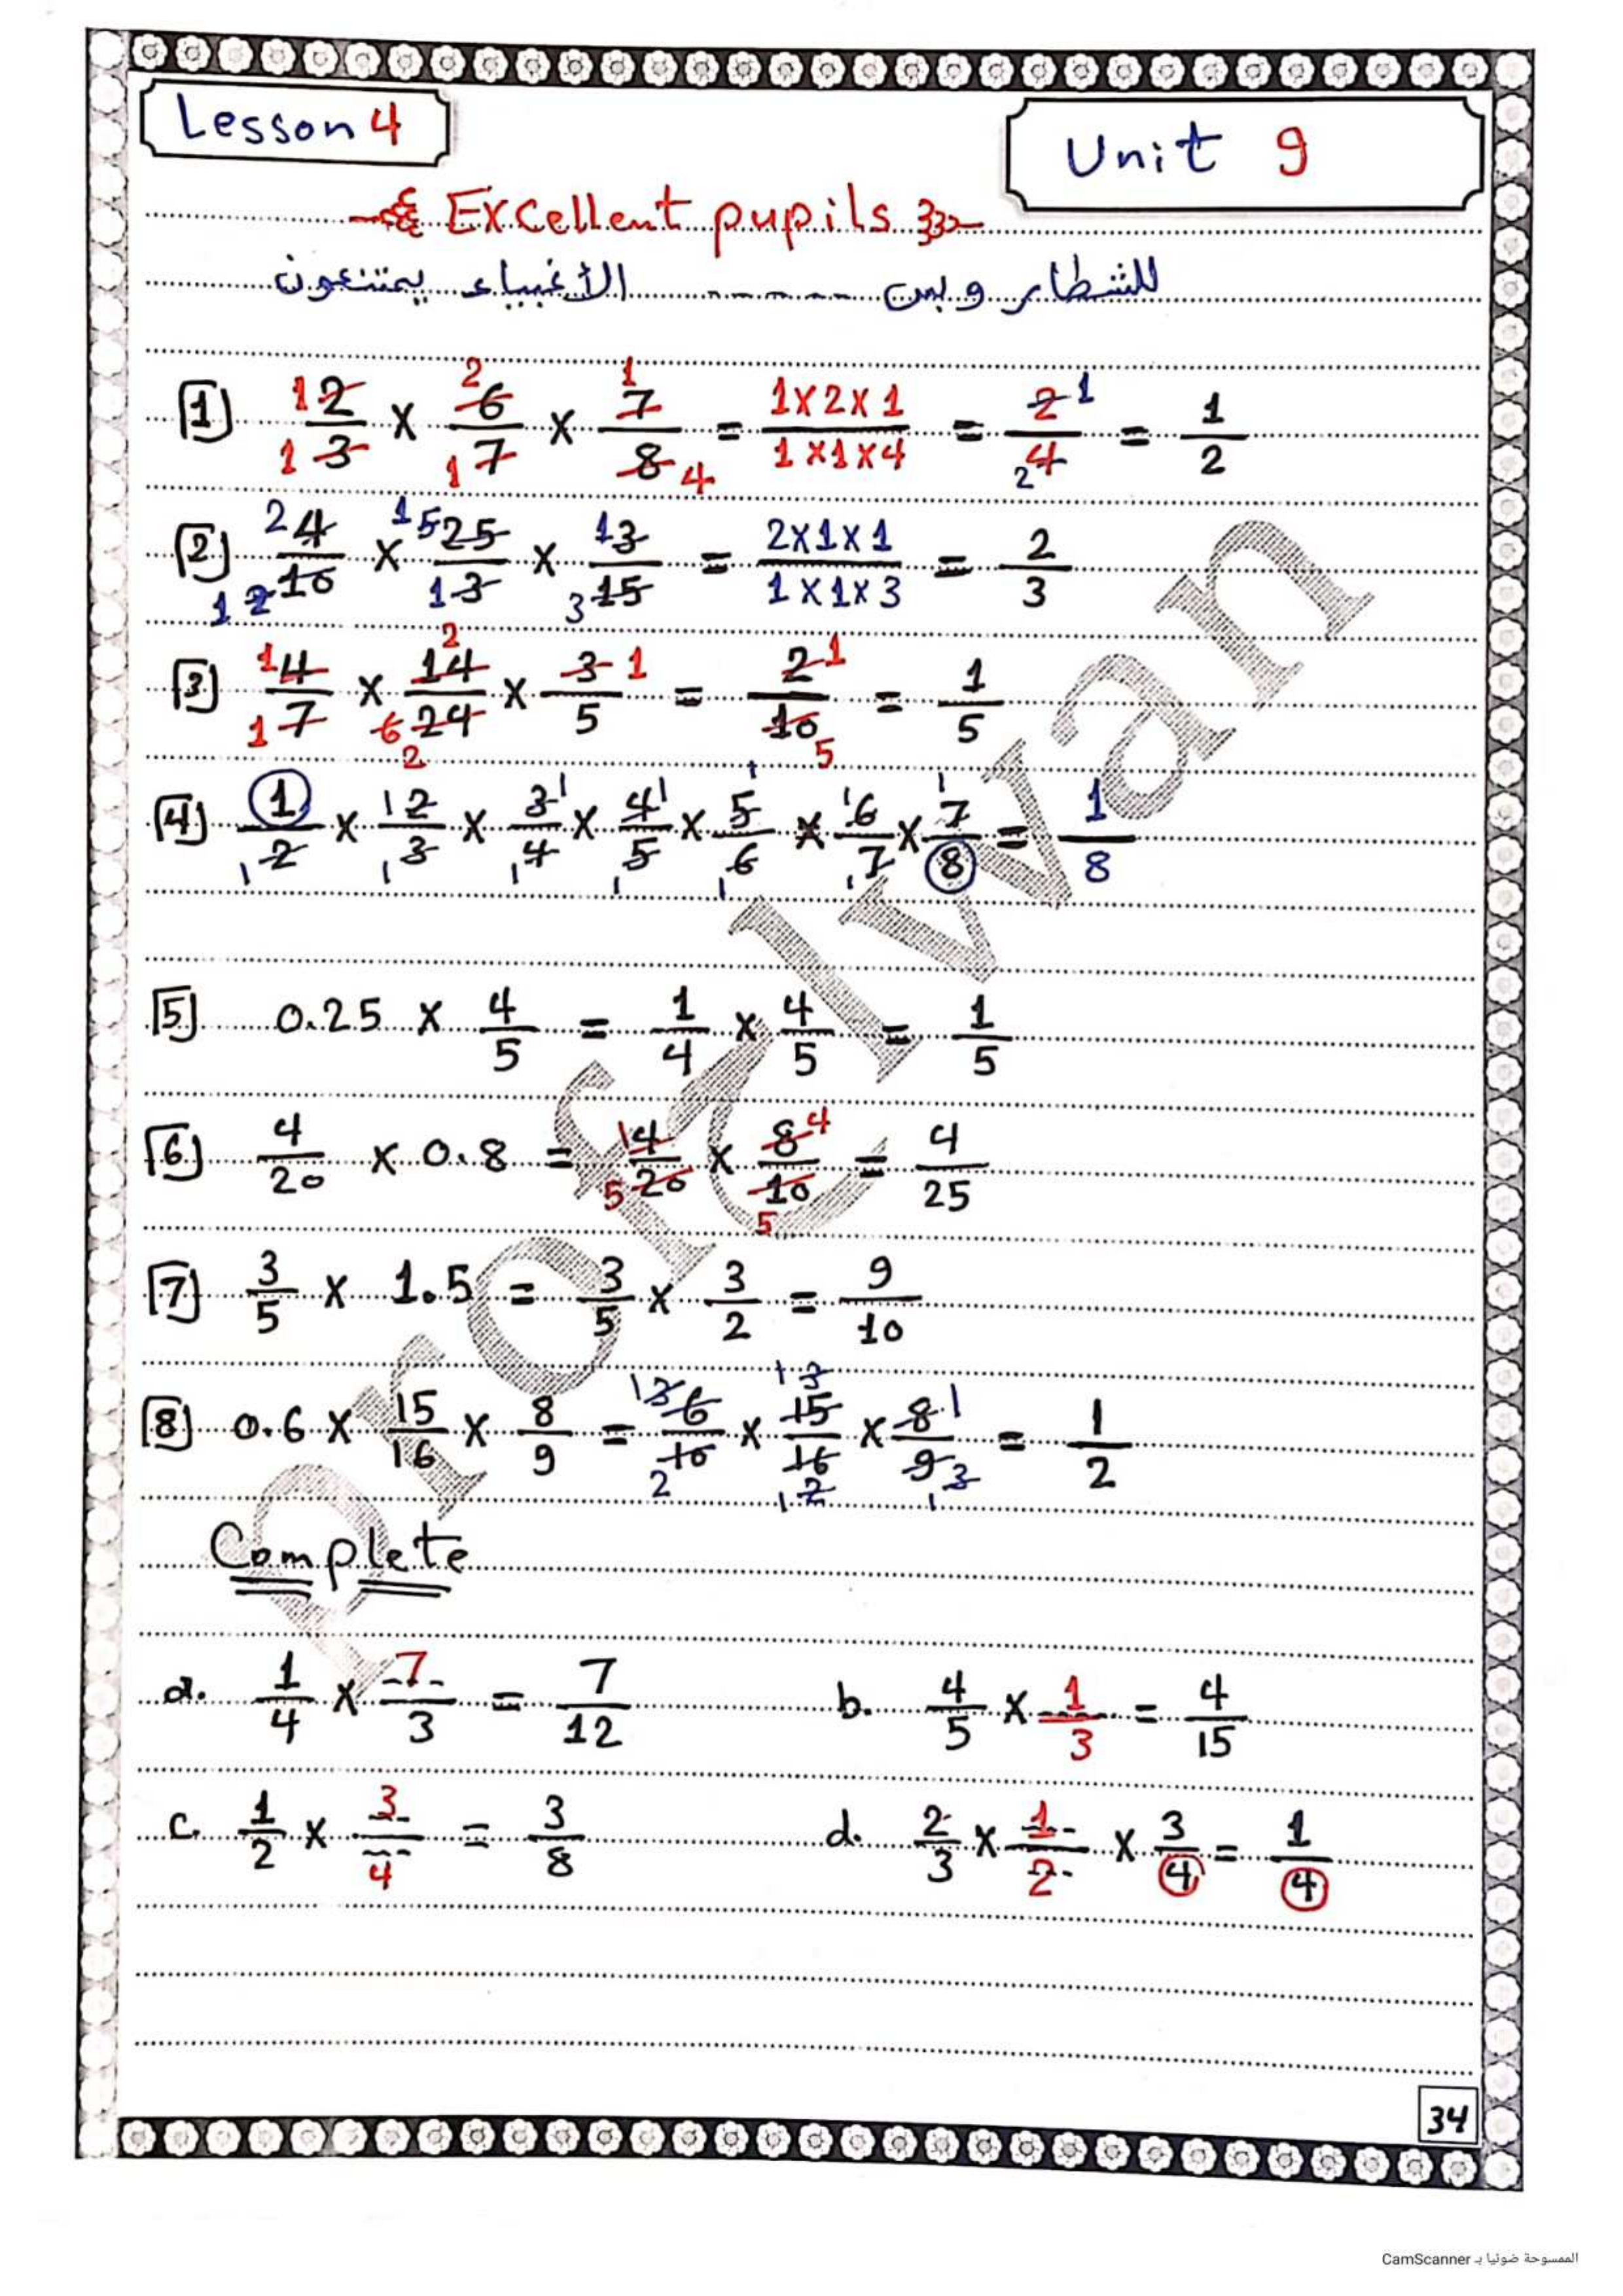 Lesson 4
Unit 9
Excellent pupils
للشطار وبس ------ الأغبياء يمتنعون
[1] 2/3 × 6/7 × 7/8 = 1×2×1 / 1×1×4 = 2/4 = 1/2
[2] 4/10 × 25/3 × 3/15 = 2×1×1 / 1×1×3 = 2/3
[3] 4/7 × 14/24 × 3/5 = 2/10 = 1/5
[4] 1/2 × 2/3 × 3/4 × 4/5 × 5/6 × 6/7 × 7/8 = 1/8
[5] 0.25 × 4/5 = 1/4 × 4/5 = 1/5
[6] 4/20 × 0.8 = 4/20 × 8/10 = 4/25
[7] 3/5 × 1.5 = 3/5 × 3/2 = 9/10
[8] 0.6 × 15/16 × 8/9 = 6/10 × 15/16 × 8/9 = 1/2
Complete
a. 1/4 × 7/3 = 7/12
b. 4/5 × 1/3 = 4/15
c. 1/2 × 3/4 = 3/8
d. 2/3 × 1/2 × 3/4 = 1/4
34
الممسوحة ضوئيا بـ CamScanner